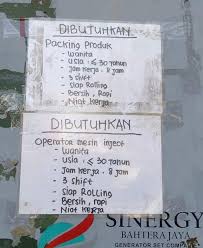 DIBUTUHKAN
Packing Produk
- Wanita
- Usia ≤ 30 Tahun
- Jam Kerja : 8 jam
- 3 Shift
- Siap Rolling
- Bersih, Rapi
- Niat Kerja
DIBUTUHKAN
Operator mesin inject
- Wanita
- Usia : ≤ 30 Tahun
- Jam Kerja : 8 jam
- 3 Shift
- Siap Rolling
- Bersih, Rapi
- Niat Kerja
SINERGY
BAHTERA JAYA
GENERATOR SET COMPANY